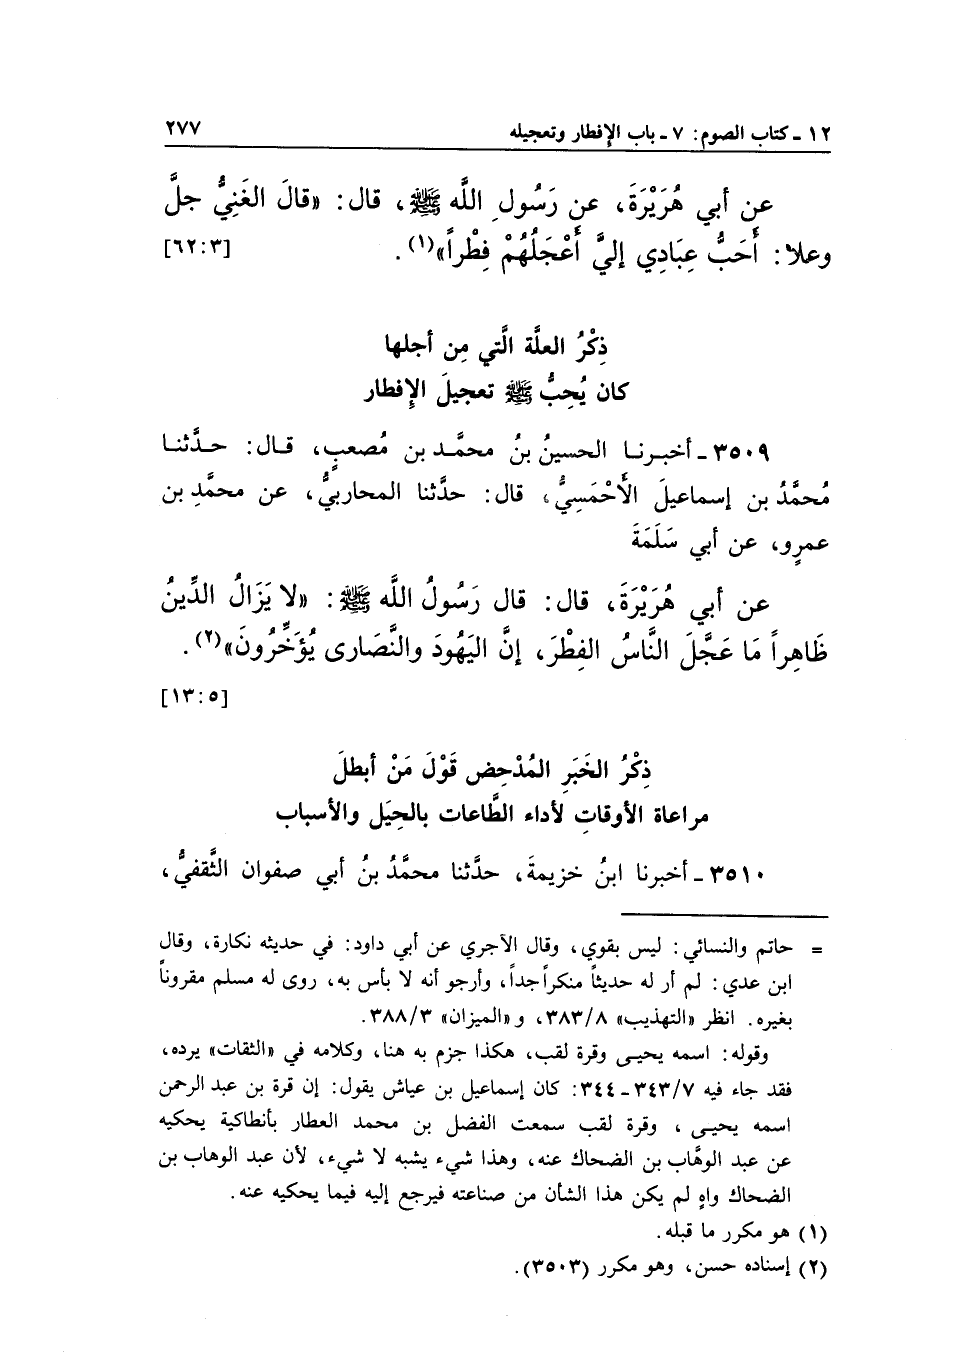 ١٢ ـ كتاب الصوم: ٧ ـ باب الإفطار وتعجيله ٢٧٧
عن أبي هُرَيْرَةَ، عن رَسُولِ اللَّه ﷺ، قال: «قالَ الغَنِيُّ جلَّ
وعلا: أَحَبُّ عِبَادِي إليَّ أَعْجَلُهُمْ فِطْراً»(١). [٣:٦٢]
ذِكْرُ العلَّة الَّتي مِن أجلها
كان يُحِبُّ ﷺ تعجيلَ الإِفطار
٣٥٠٩ ـ أخبرنا الحسينُ بنُ محمَّد بن مُصعبٍ، قال: حدَّثنا
مُحمَّدُ بن إسماعيلَ الأَحْمَسِيُّ، قال: حدَّثنا المحاربيُّ، عن محمَّدِ بن
عمرٍو، عن أبي سَلَمَةَ
عن أبي هُرَيْرَةَ، قال: قال رَسُولُ اللَّه ﷺ: «لا يَزَالُ الدِّينُ
ظَاهِراً مَا عَجَّلَ النَّاسُ الفِطْرَ، إنَّ اليَهُودَ والنَّصَارى يُؤَخِّرُونَ»(٢).
[٥:١٣]
ذِكْرُ الخَبَرِ المُدْحِضِ قَوْلَ مَنْ أبطلَ
مراعاة الأوقاتِ لأداء الطَّاعات بالحِيَل والأسباب
٣٥١٠ ـ أخبرنا ابنُ خزيمةَ، حدَّثنا محمَّدُ بنُ أبي صفوان الثَّقفيُّ،
= حاتم والنسائي: ليس بقوي، وقال الآجري عن أبي داود: في حديثه نكارة، وقال
ابن عدي: لم أر له حديثاً منكراً جداً، وأرجو أنه لا بأس به، روى له مسلم مقروناً
بغيره. انظر «التهذيب» ٣٨٣/٨، و«الميزان» ٣٨٨/٣.
وقوله: اسمه يحيى وقرة لقب، هكذا جزم به هنا، وكلامه في «الثقات» يرده،
فقد جاء فيه ٣٤٣/٧ ـ ٣٤٤: كان إسماعيل بن عياش يقول: إن قرة بن عبد الرحمن
اسمه يحيى، وقرة لقب سمعت الفضل بن محمد العطار بأنطاكية يحكيه
عن عبد الوهَّاب بن الضحاك عنه، وهذا شيء يشبه لا شيء، لأن عبد الوهاب بن
الضحاك واهٍ لم يكن هذا الشأن من صناعته فيرجع إليه فيما يحكيه عنه.
(١) هو مكرر ما قبله.
(٢) إسناده حسن، وهو مكرر (٣٥٠٣).